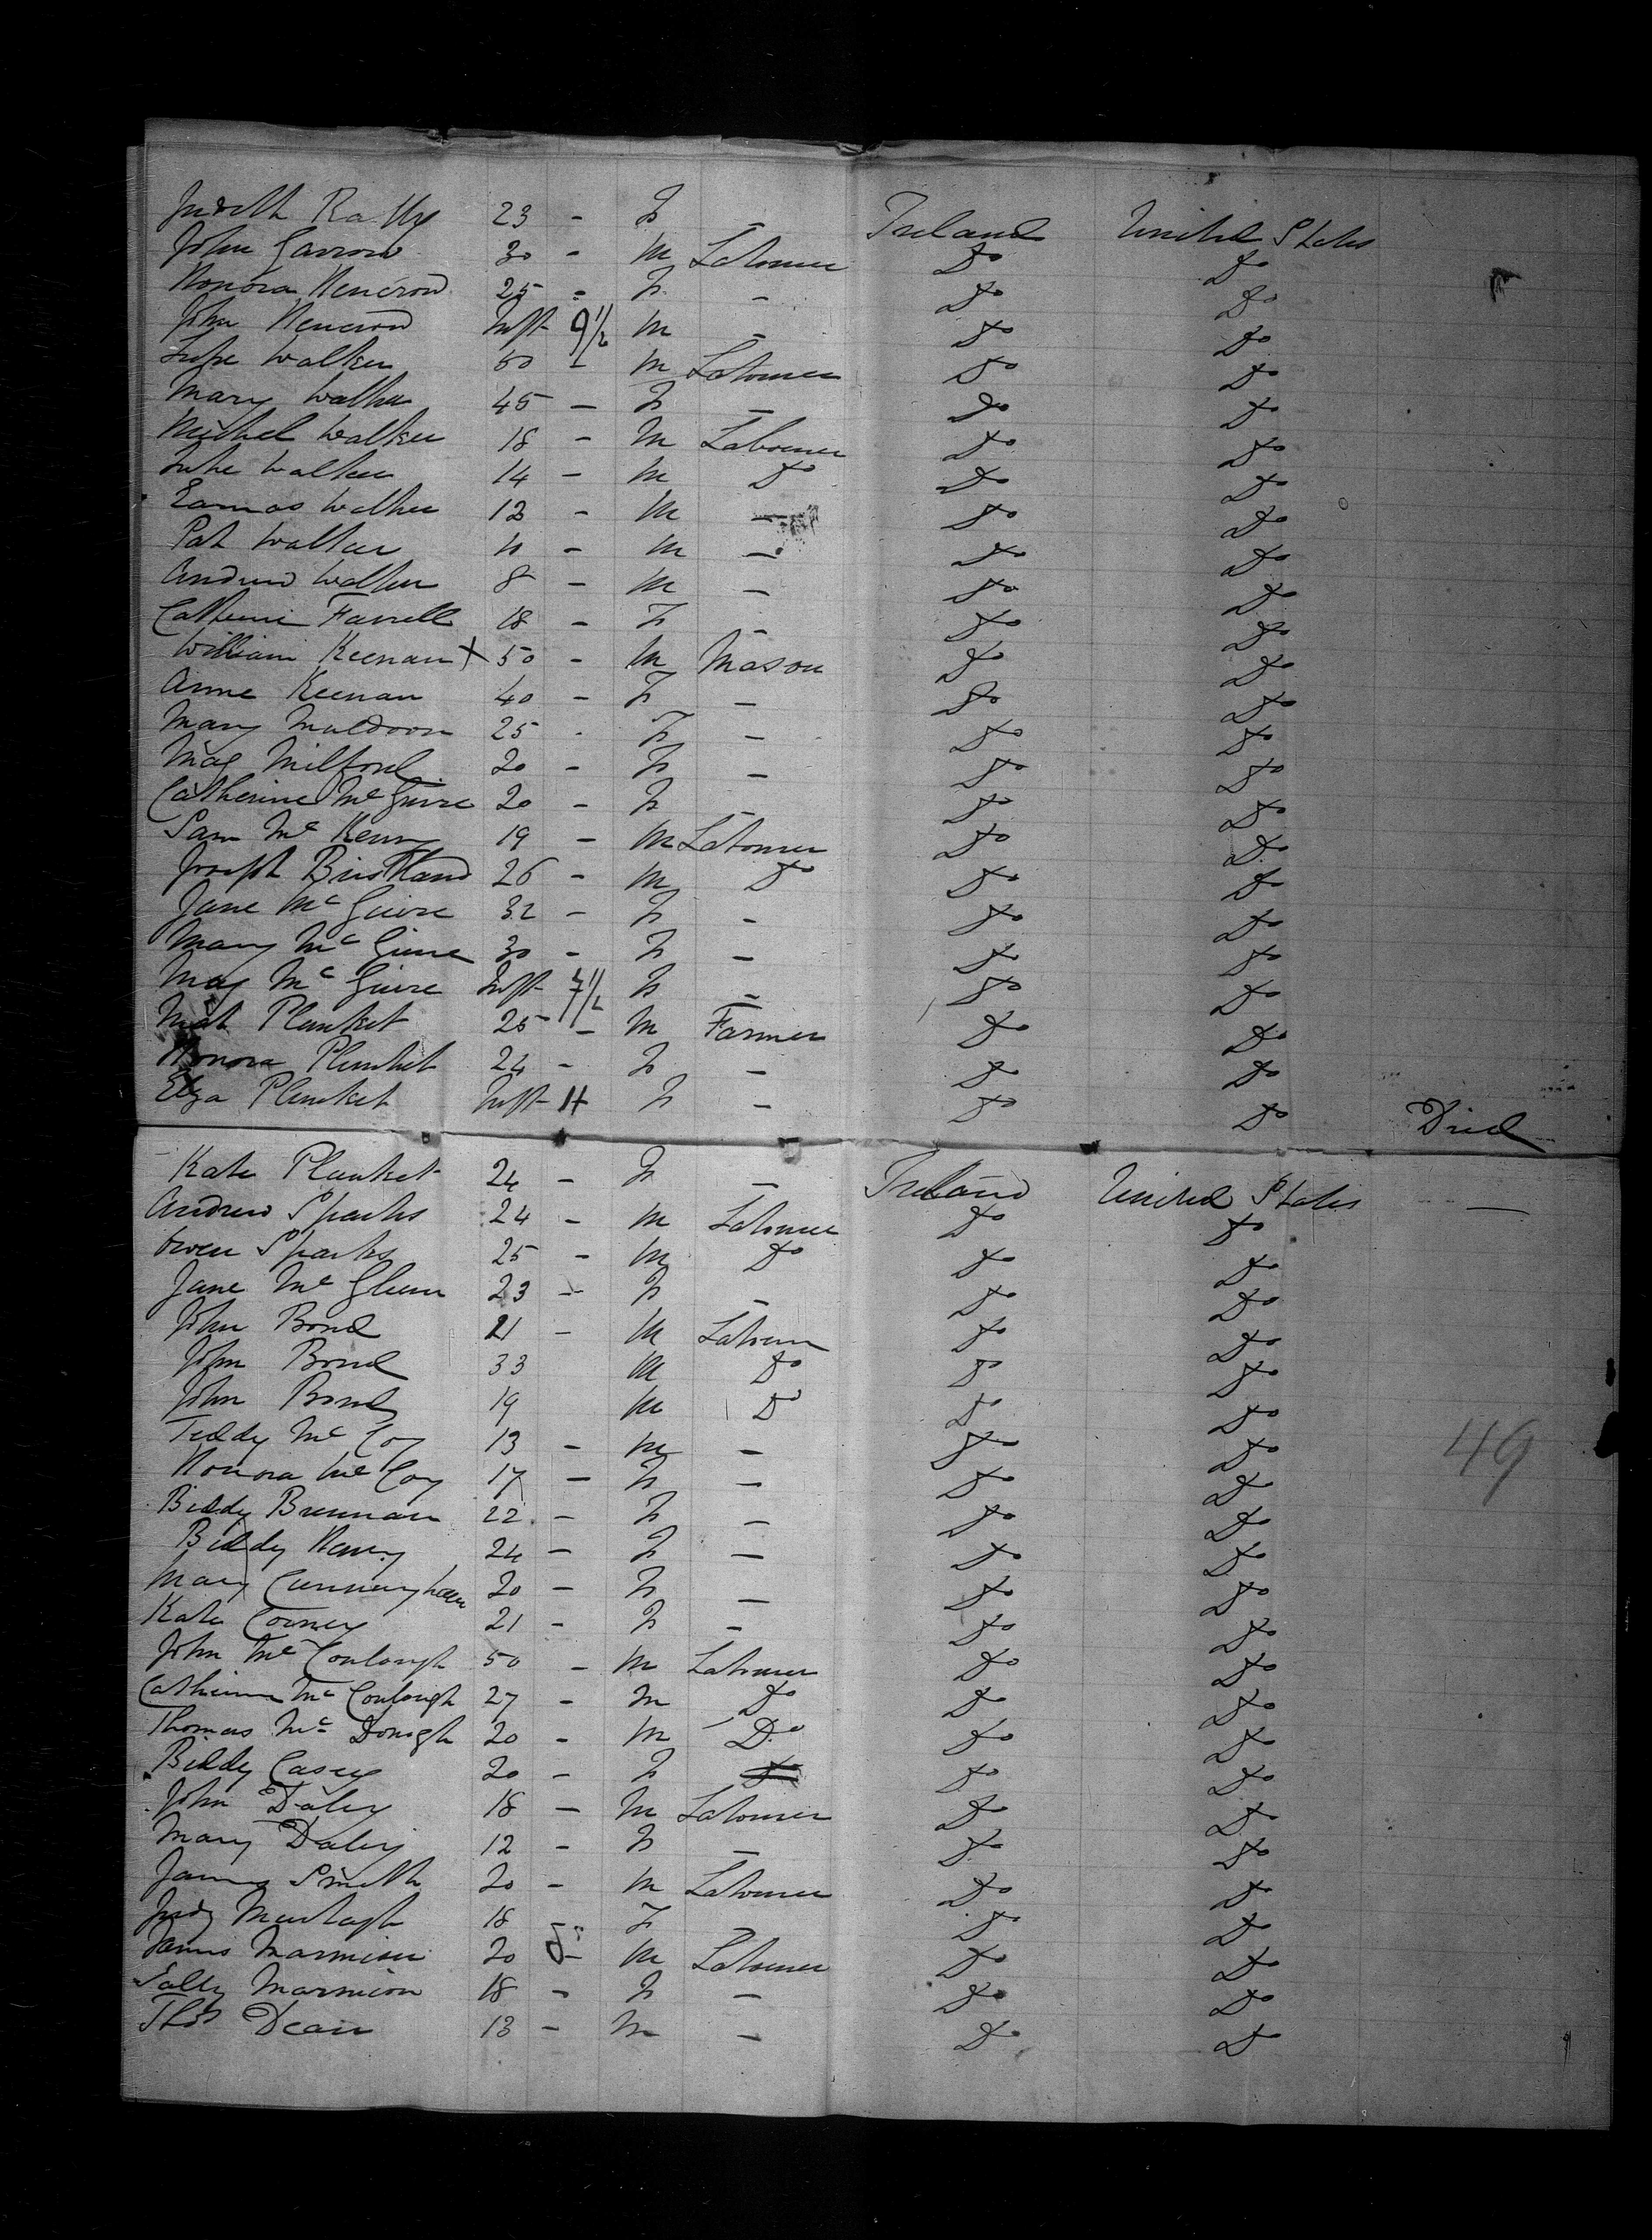 Judith Raftly 23 - F - Ireland United States
John Garrow 30 - M Labourer Do Do
Honora Heneron 25 - F - Do Do
John Heneron Inft 9 1/2 M - Do Do
Luke Walker 50 - M Labourer Do Do
Mary Walker 45 - F - Do Do
Michel Walker 18 - M Labourer Do Do
Luke Walker 14 - M Do Do Do
Walker 12 - M - Do Do
Pat Walker 10 - M - Do Do
Andrew Walker 8 - M - Do Do
Catherine Farrell 18 - F - Do Do
William Keenan X 50 - M Mason Do Do
Anne Keenan 40 - F - Do Do
Mary Muldoon 25 - F - Do Do
Mag Milford 20 - F - Do Do
Catherine McGuire 20 - F - Do Do
Sam McKenny 19 - M Labourer Do Do
Joseph Bristland 26 - M Do Do Do
Jane McGuire 32 - F - Do Do
Mary McGuire 30 - F - Do Do
Mag McGuire Inft 7 1/2 F - Do Do
Mat Plunket 25 - M Farmer Do Do
Honora Plunket 24 - F - Do Do
Eliza Plunket Inft 11 F - Do Do Died
Kate Plunket 24 - F - Ireland United States -
Andrew Sparks 24 - M Labourer Do Do
Owen Sparks 25 - M Do Do Do
Jane McGlenn 23 - F - Do Do
John Bond 21 - M Labourer Do Do
John Bond 33 M Do Do Do
John Bond 19 M Do Do Do
Teddy McCoy 13 - M - Do Do 49
Honora McCoy 17 - F - Do Do
Biddy Brennan 22 - F - Do Do
Biddy Henry 24 - F - Do Do
Mary Cunningham 20 - F - Do Do
Kate Corney 21 - F - Do Do
John McConlough 50 - M Labourer Do Do
Catherine McConlough 27 - M Do Do Do
Thomas McDonagh 20 - M Do Do Do
Biddy Casey 20 - F Do Do Do
John Daley 18 - M Labourer Do Do
Mary Daley 12 - F - Do Do
James Smith 20 - M Labourer Do Do
Judy Murtagh 18 F Do Do
James Marmion 20 - M Labourer Do Do
Sally Marmion 18 - F - Do Do
Thos Dean 13 - M - Do Do